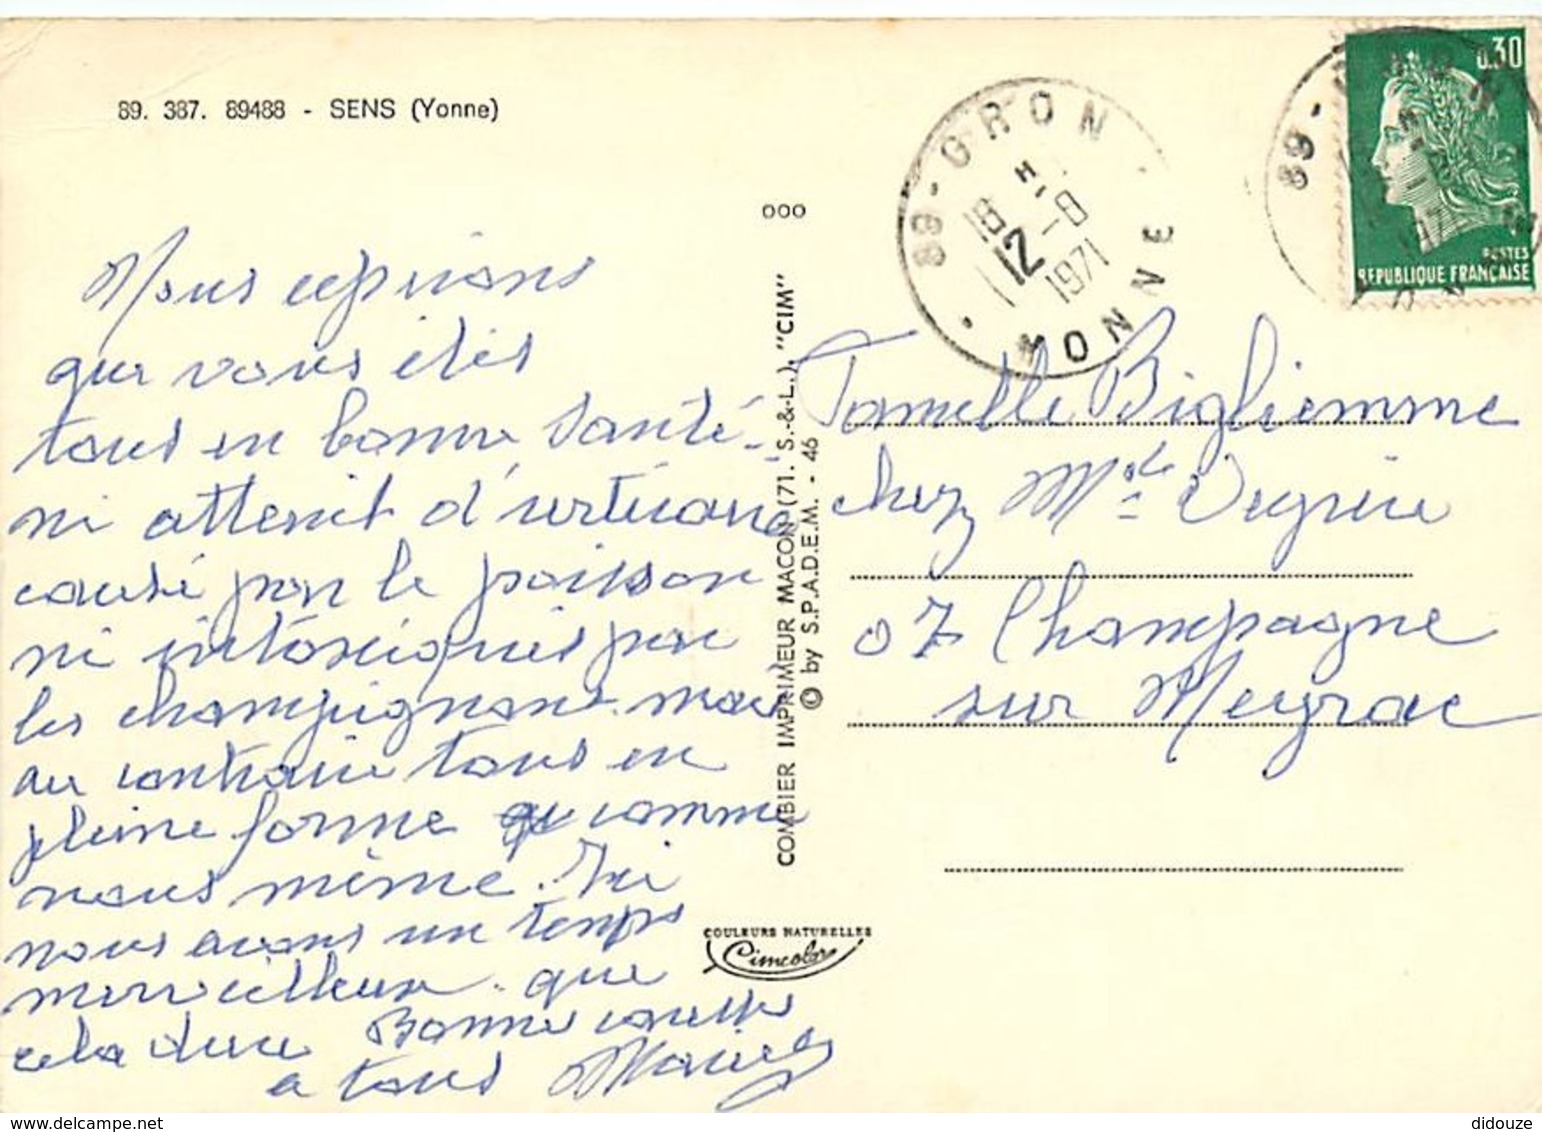 89. 387. 89488 - SENS (Yonne)
ooo
89 - GRON
18 H
12 - 8
1971
YONNE
89 -
0.30
POSTES
REPUBLIQUE FRANÇAISE
1971
Nous espérons
que vous êtes
tous en bonne santé -
ni atteint d'urticaire
causé par le poisson
ni intoxiqués par
les champignons mais
au contraire tous en
pleine forme comme
nous même. Ici
nous avons un temps
merveilleux que
cela dure Bonnes
a tous
COMBIER IMPRIMEUR MACON (71. S.-&-L.). "CIM"
© by S.P.A.D.E.M. - 46
COULEURS NATURELLES
Cimcolor
Famille Bigliemme
chez Mde
07 Champagne
sur Meyrac
didouze